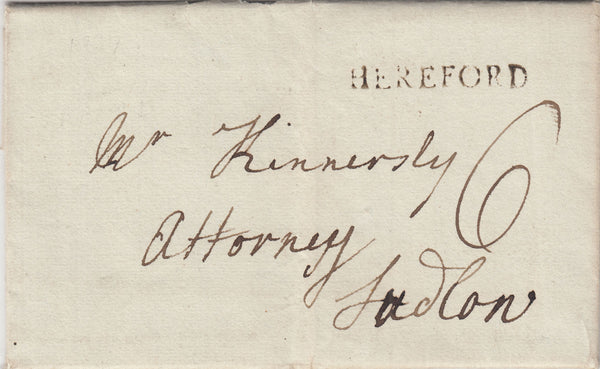 HEREFORD
Mr Kinnersly 6
Attorney
Ludlow